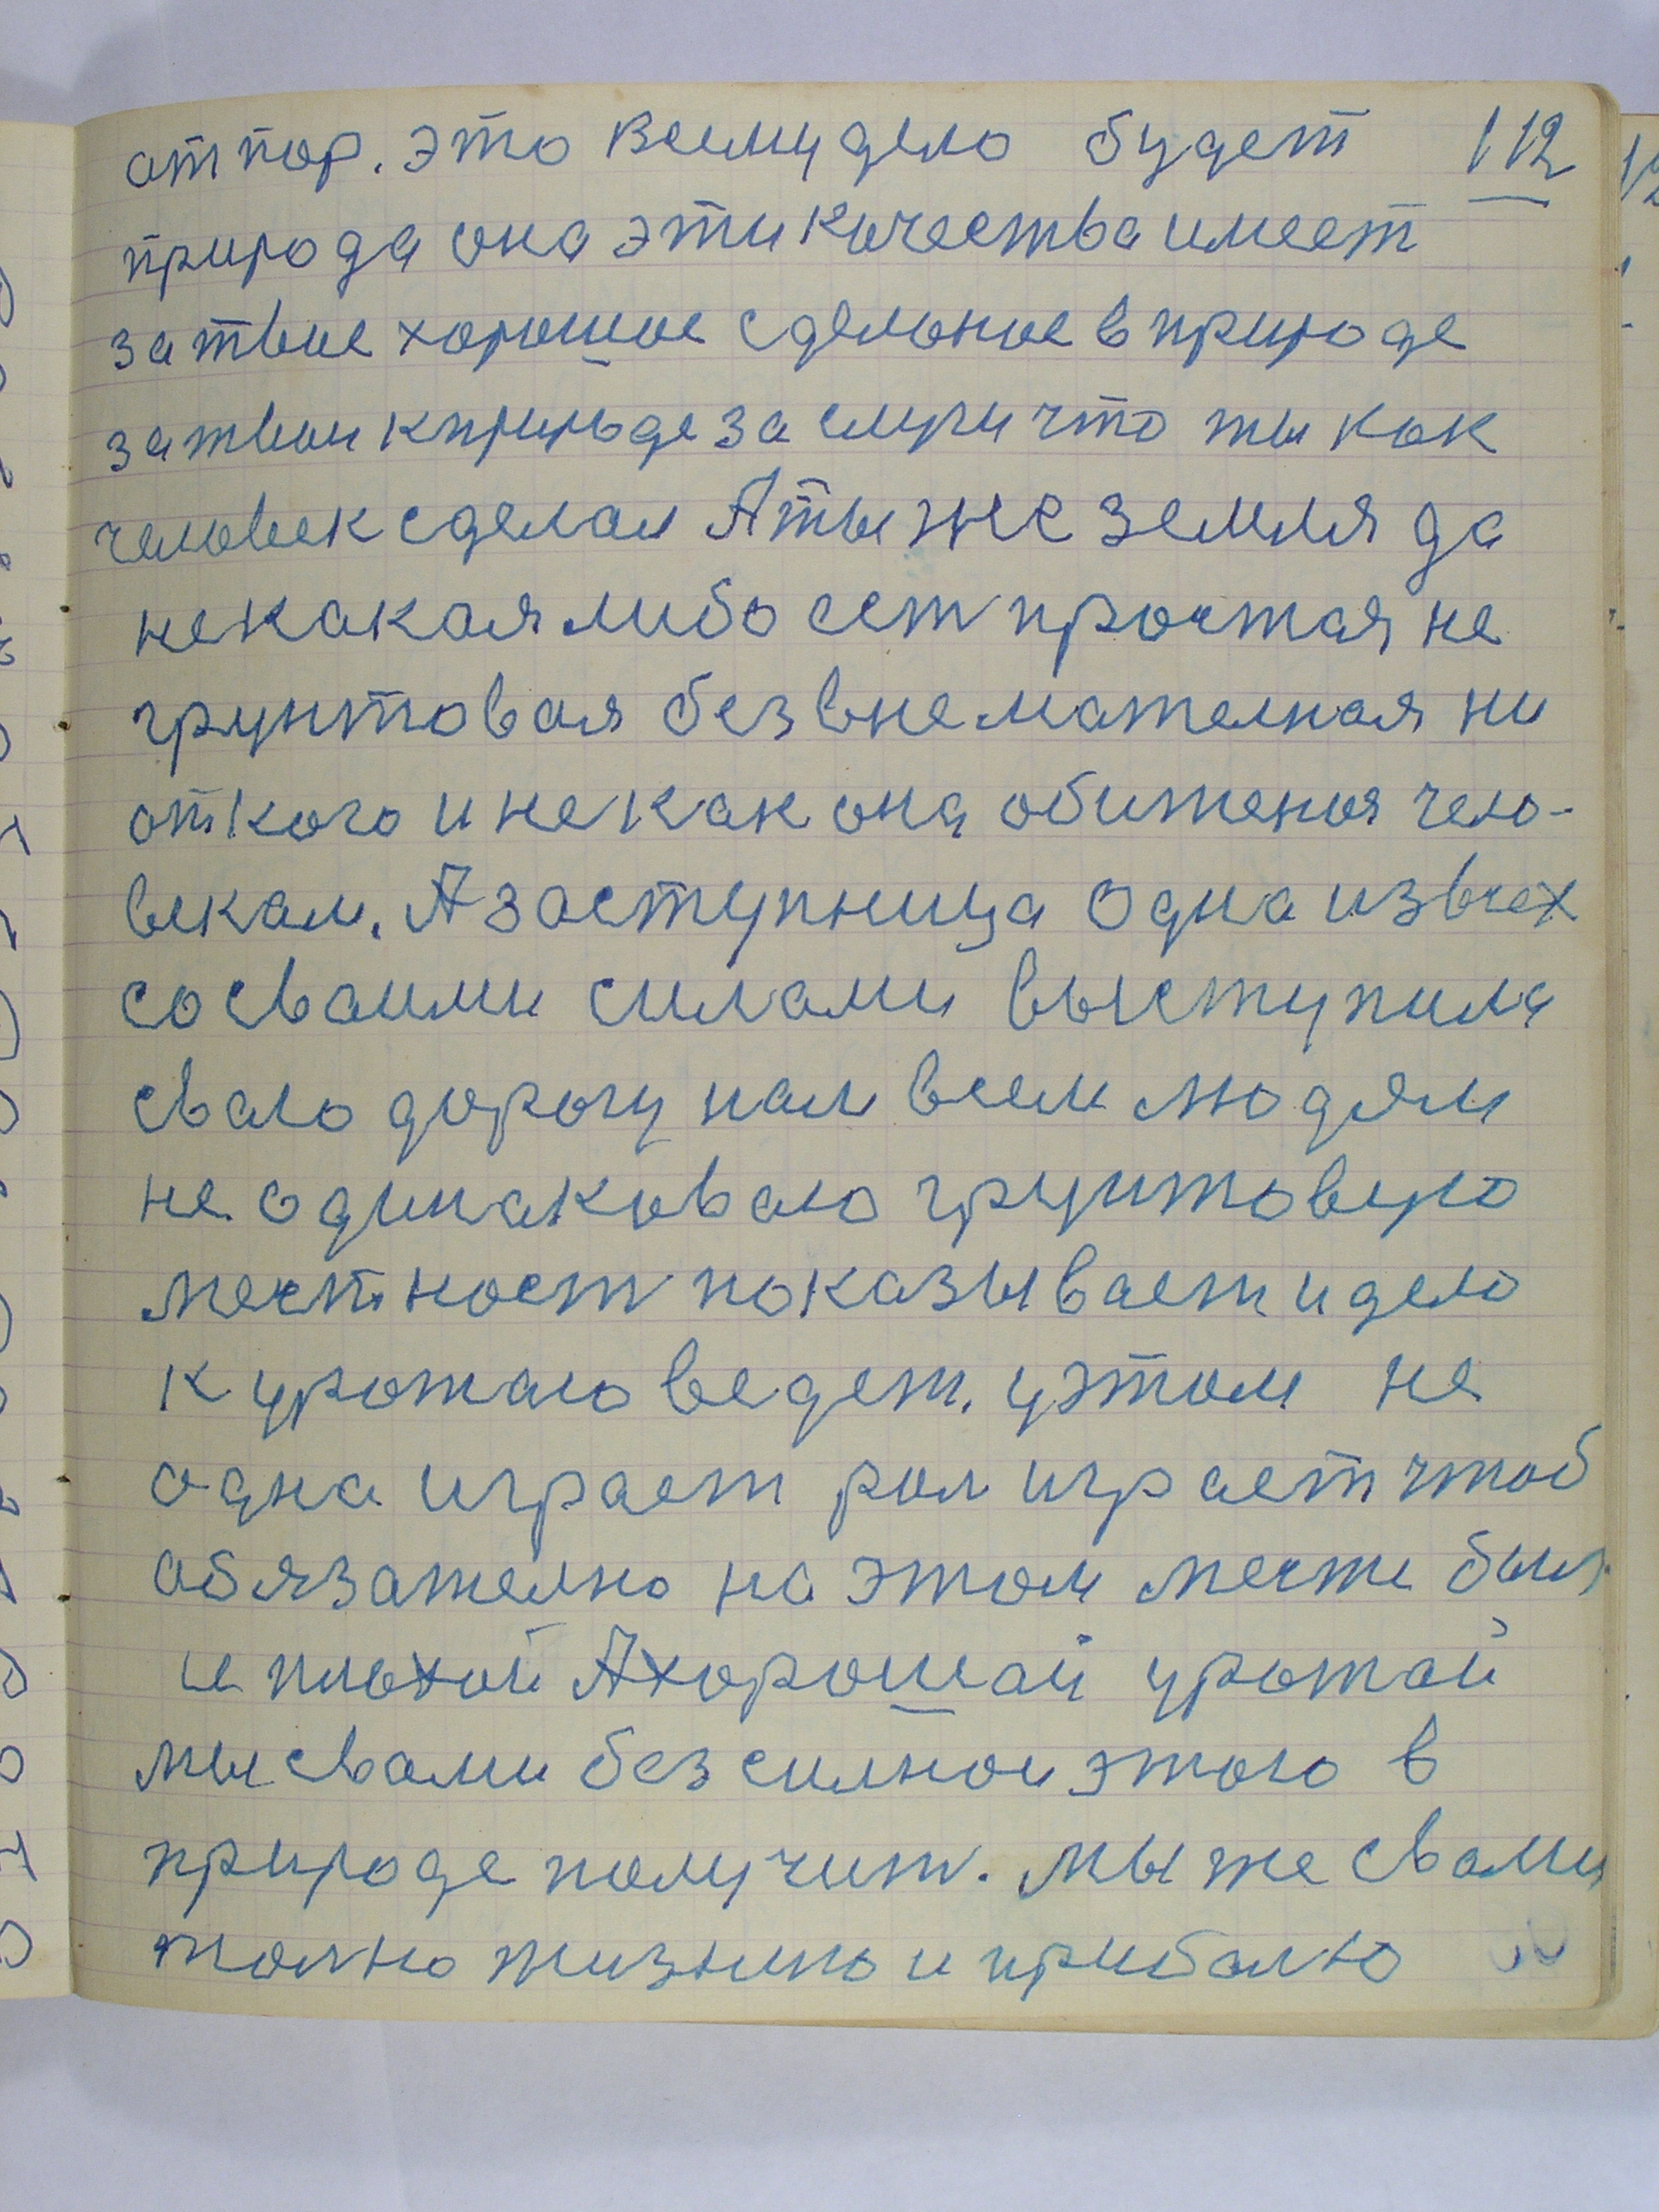 отпор. это всему дело будет 112
природа она эти качества имеет
за твое хорошое сделоное в природе
за твои к природе заслуги что ты как
человек сделал А ты же земля да
не какая либо ест простая не
грунтовая без внемателная ни
от кого и не как она обиженоя чело-
векам. А заступница одна из всех
со своими силами выступила
сваю дорогу нам всем людям
не одинаковаю грунтовую
местност показывает и дело
к урожаю ведет. у этом не
одна играет рол играет чтоб
обязателно на этом месте был
не плохой А хорошай урожай
мы с вами без силнои этого в
природе получит. мы же с вами
толко жизнию и прибалю